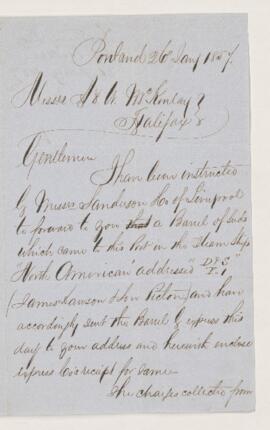 Portland 26 Jany 1857.
Messrs A & W McKinlay
Halifax
Gentlemen
I have been instructed
by Messrs Sanderson &Co of Liverpool
to forward to you that a Barrel of Seeds
which came to this Port in the Steam Ship
"North American" addressed
(James Dawson & Son Pictou) and have
accordingly sent the Barrel by express this
day to your address and herewith enclose
express Co's receipt for same
The charges collected from